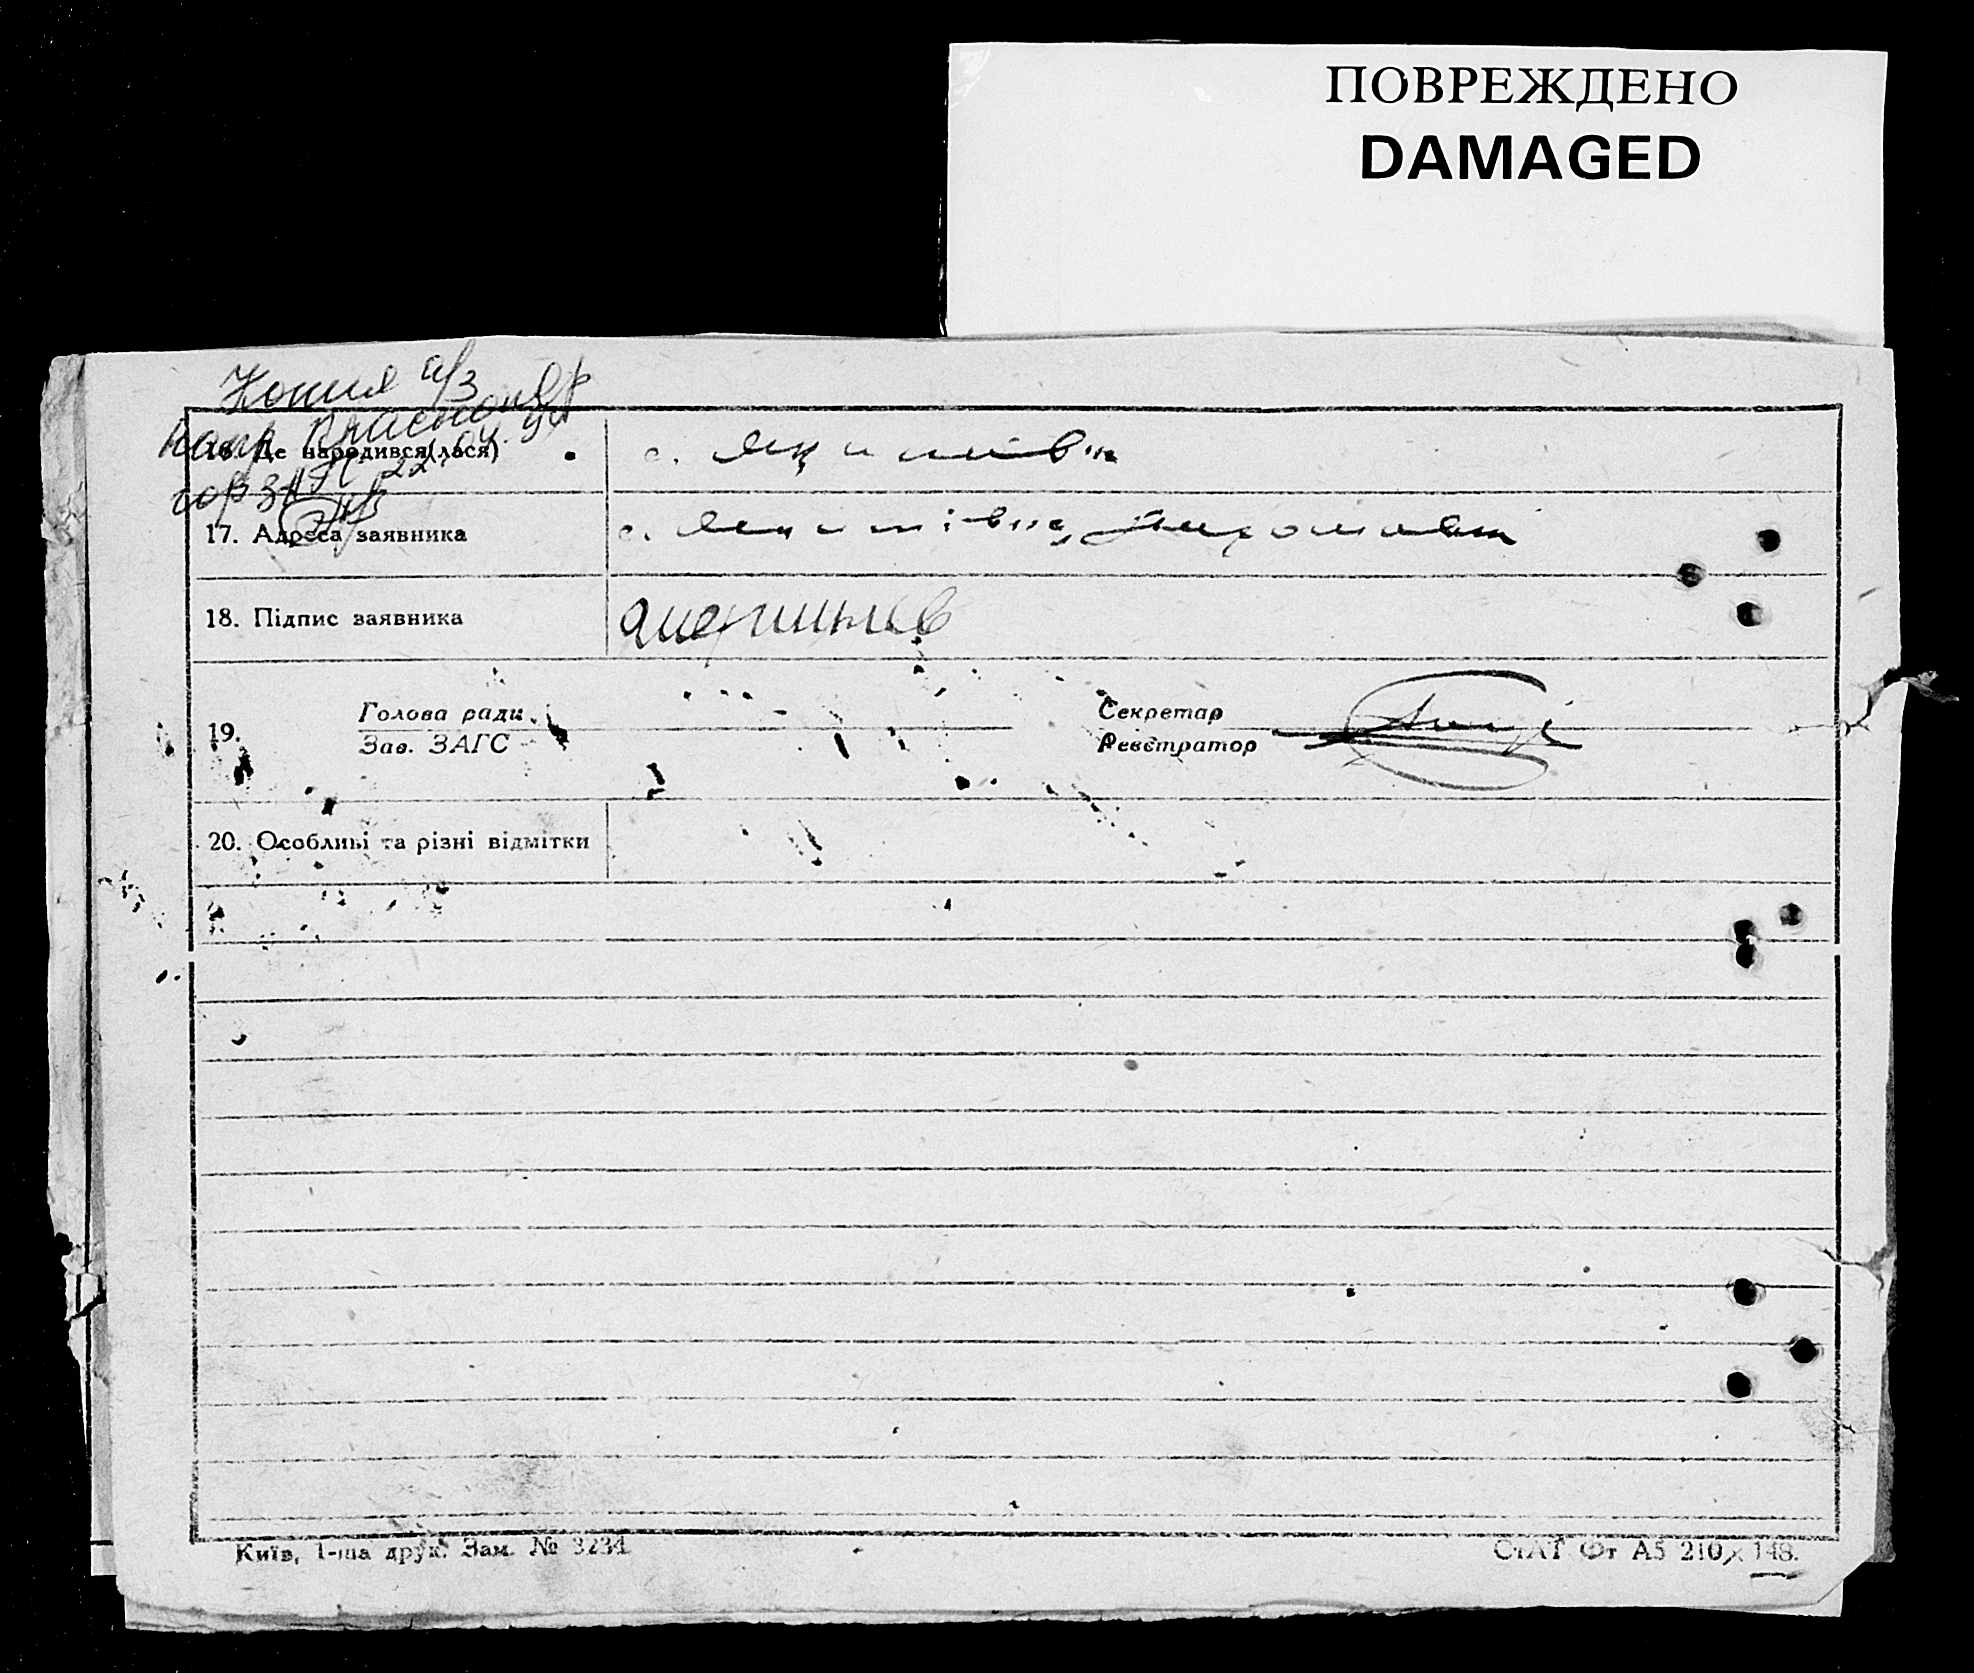 ПОВРЕЖДЕНО
DAMAGED
Копия а/з
напр Краснояр
16. Де народився(лася)
с. Якимівка
горЗАГС 22
17. Адреса заявника
с. Якимівка,
18. Підпис заявника
19.
Голова ради
Зав. ЗАГС
Секретар
Реєстратор
20. Особливі та різні відмітки
Київ, 1-ша друк. Зам. № 3234
СтАТ Фт А5 210 × 148.